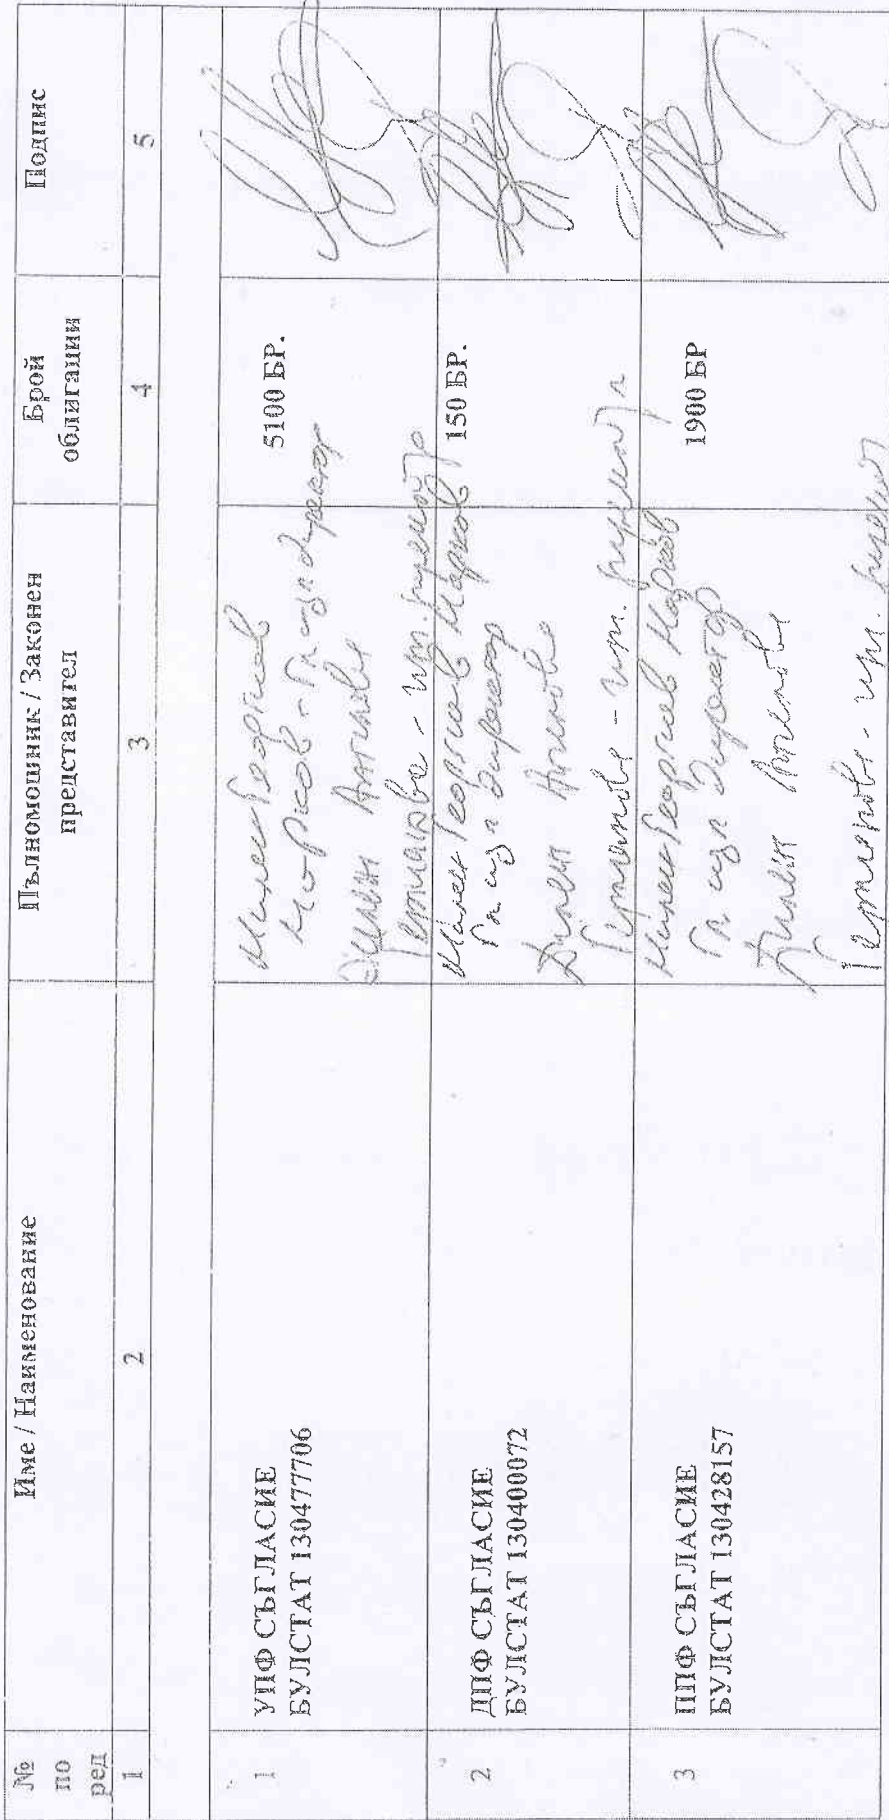 №
по
ред
Име / Наименование
Пълномощник / Законен
представител
Брой
облигации
Подпис
1
2
3
4
5
1
УПФ СЪГЛАСИЕ
БУЛСТАТ 130477706
Милен Георгиев
Марков - Гл. изп. директор
Ангелова
5100 БР.
2
ДПФ СЪГЛАСИЕ
БУЛСТАТ 130400072
Милен Георгиев Марков
Гл. изп. директор
Ангелова
150 БР.
3
ППФ СЪГЛАСИЕ
БУЛСТАТ 130428157
Милен Георгиев Марков
Гл. изп. директор
Ангелова
1900 БР